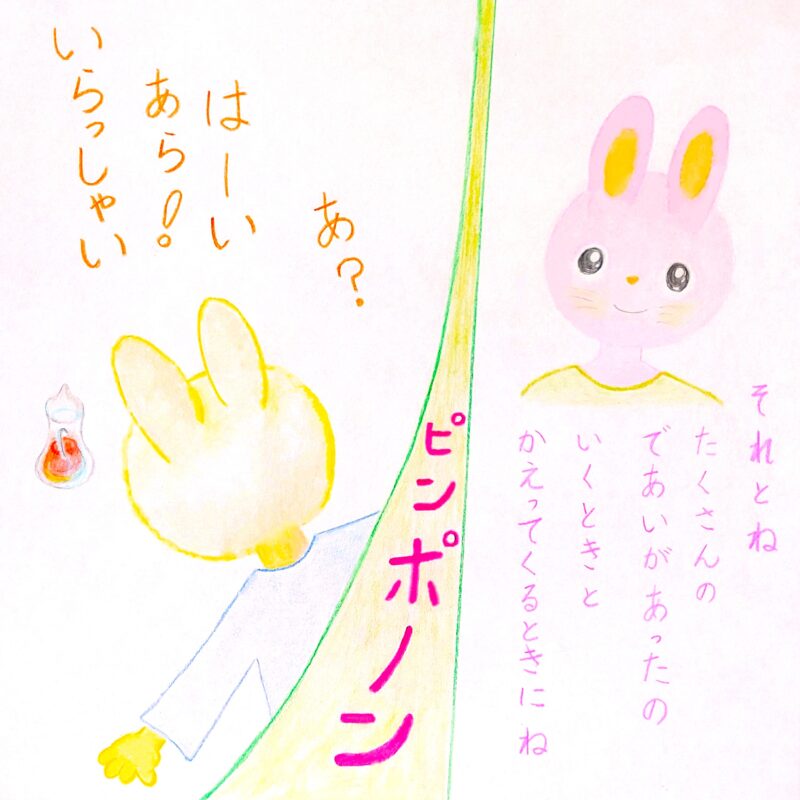 それとね
たくさんの
であいがあったの
いくときと
かえってくるときにね
ピンポーン
あ?
はーい
あら!
いらっしゃい